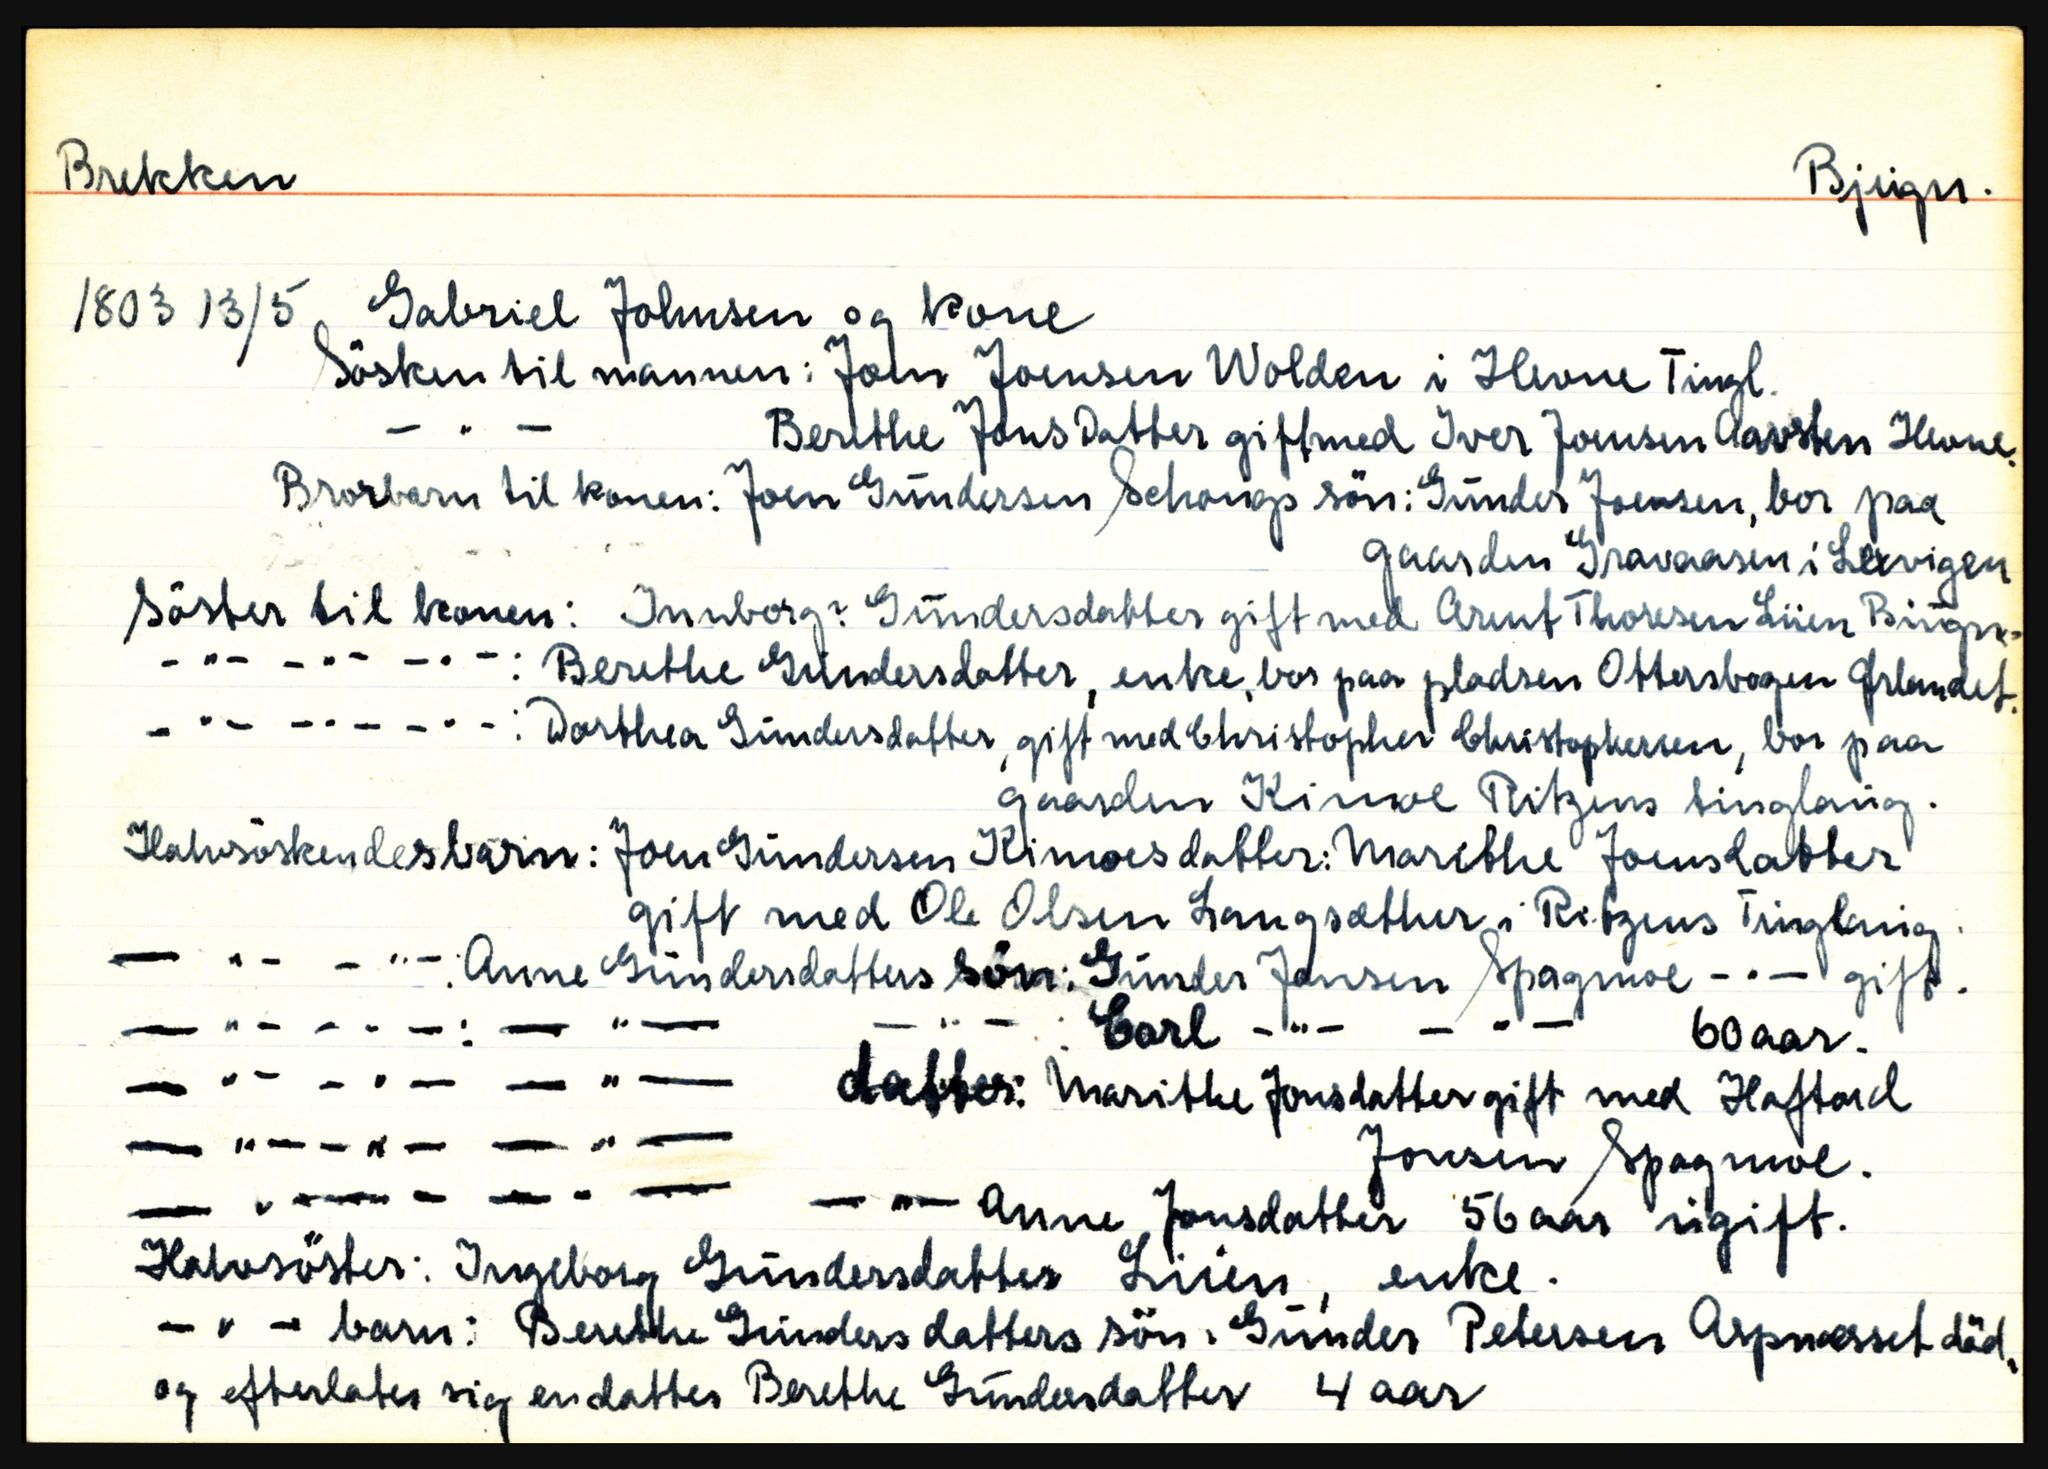 Brekken Bjugn.
1803 13/5 Gabriel Johnsen og kone
Sösken til mannen: John Joensen Wolden i Hevne Tingl.
— " — Berethe Jons Datter gift med Iver Joensen Aavsten Hevne.
Brorbarn til konen: Joen Gundersen Schougs sön: Gunder Joensen, bor paa
gaarden Gravaasen i Lexvigen
Söster til konen: Innborg? Gundersdatter gift med Arent Thoresen Liien Biugn.
- " - - " - - " - : Berethe Gundersdatter, enke, bor paa pladsen Ottersbogen Ørlandet.
- " - - " - - " - : Dorthea Gundersdatter, gift med Christopher Christophersen, bor paa
gaarden Kimoe Ritzens tinglaug.
Halvsöskendesbarn: Joen Gundersen Kimoes datter: Marithe Joensdatter
gift med Ole Olsen Langsæther i Ritzens Tinglaug.
— " - - " - : Anne Gundersdatters sön: Gunder Jonsen Spagmoe - " - gift.
— " - - " - : — " — — " — : Carl - " - - " — 60 aar.
— " - - " — — " — datter: Marithe Jonsdatter gift med Haftord
— " - - " - — " — Jonsen Spagmoe.
— " — - — " — — " — Anne Jonsdatter 56 aar ugift.
Halvsöster: Ingeborg Gundersdatter Liien, enke.
— " — barn: Berethe Gundersdatters sön: Gunder Petersen Aspnæsset död,
og efterlater sig en datter Berethe Gundersdatter 4 aar